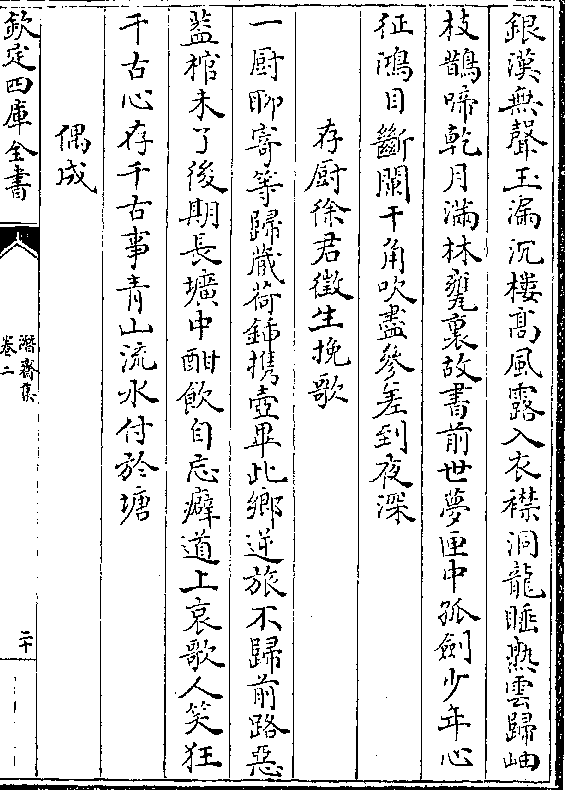 銀漢無聲玉漏沉樓髙風露入衣襟洞龍睡熟雲歸岫
枝鵲啼乾月滿林甕裏故書前世夢匣中孤劍少年心
征鴻目斷闌干角吹盡參差到夜深
存厨徐君徵生挽歌
一厨聊寄等歸藏荷鍤携壺畢此鄉逆旅不歸前路惡
蓋棺未了後期長壙中酣飲自忘癖道上哀歌人笑狂
千古心存千古事青山流水付於塘
偶成
欽定四庫全書
潛齋集
卷二
二十